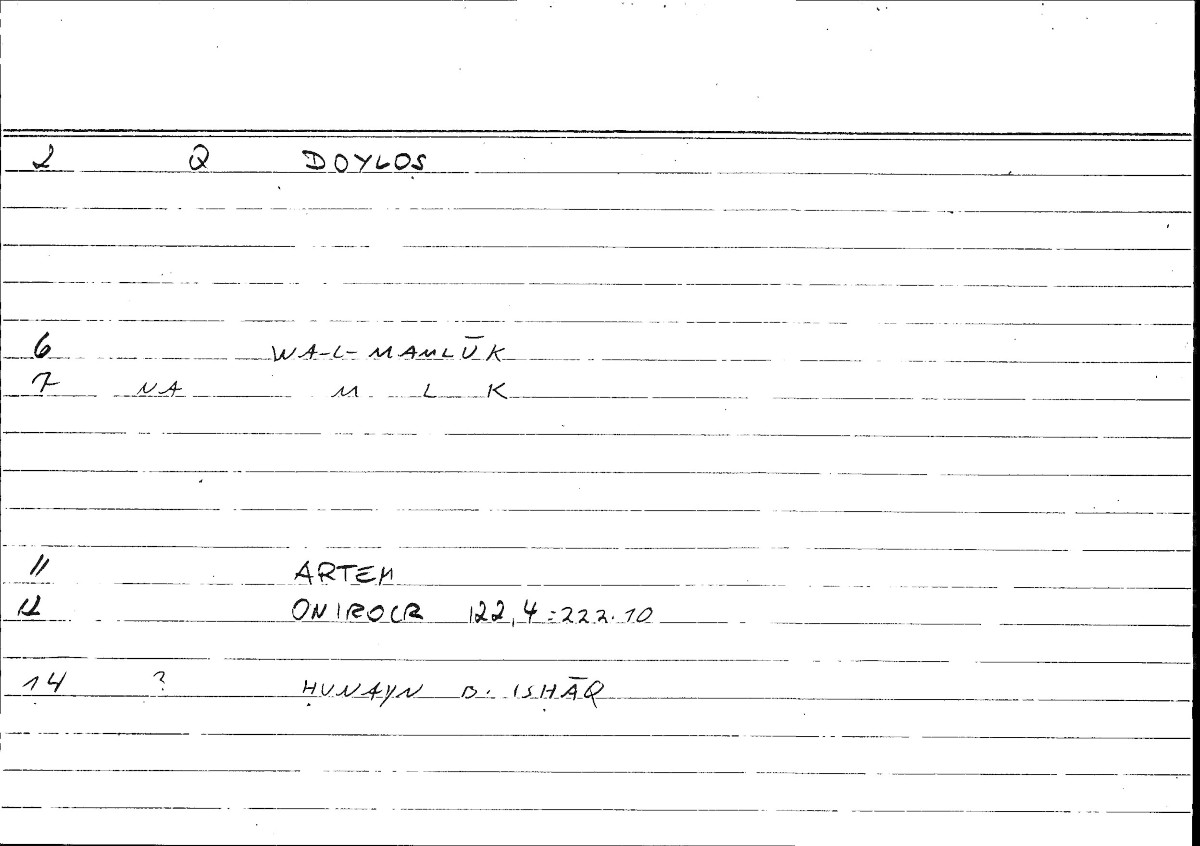 2 Q DOYLOS
6 WA-L-MAMLŪK
7 NA M L K
11 ARTEM
12 ONIROCR 122,4=222.10
14 ? ḤUNAYN B. ISḤĀQ